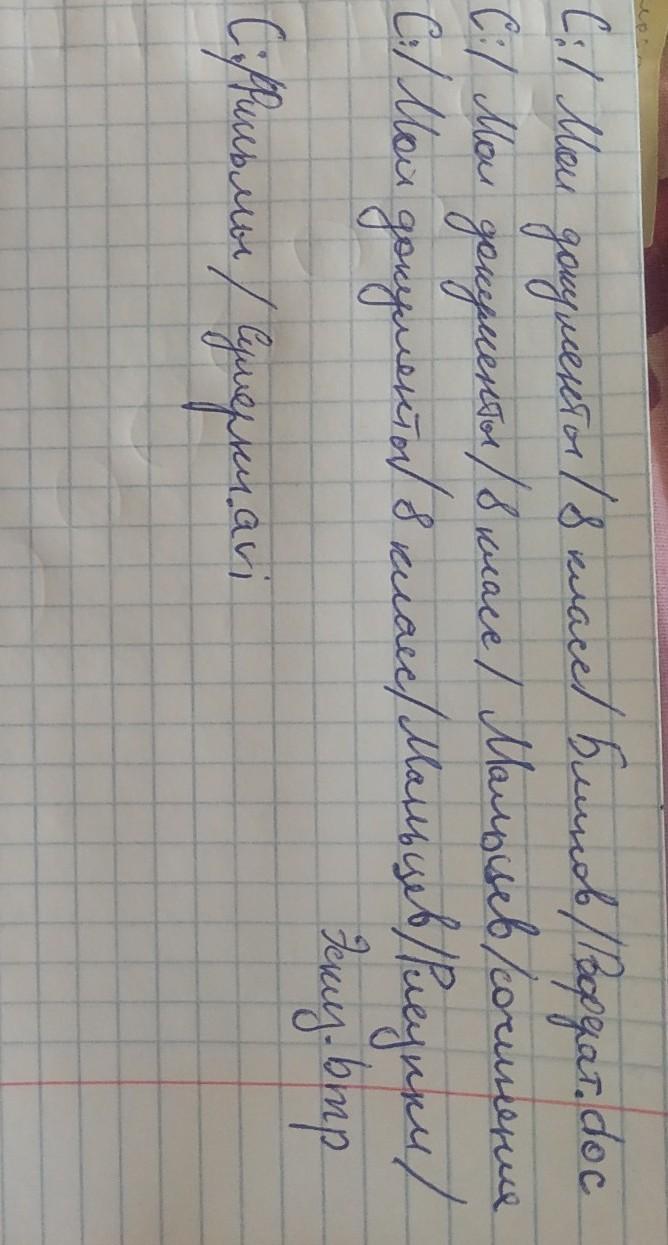 C:/ Мои документы / 8 класс / Блинов / Реферат.doc
C:/ Мои документы / 8 класс / Мальцев / сочинения
C:/ Мои документы / 8 класс / Мальцев / Рисунки /
Эскиз.bmp
C:/ Фильмы / Сумерки.avi